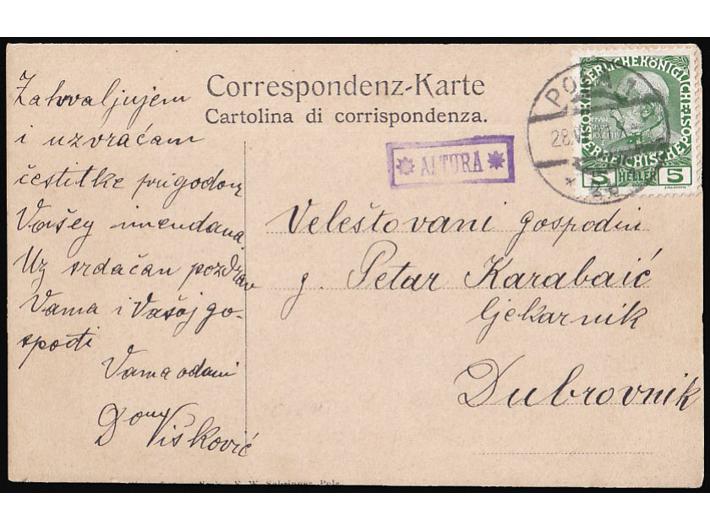 Correspondenz-Karte
Cartolina di corrispondenza.
Zahvaljujem
i uzvraćam
čestitke prigodom
Vašeg imendana
Uz srdačan pozdrav
Vama i Vašoj go-
spođi
Vama odani
Višković
ALTURA
POLA 1
28
KAISERLICHE KÖNIGLICHE
5 HELLER 5
Veleštovani gospodin
g. Petar Karabaić
ljekarnik
Dubrovnik
Pola